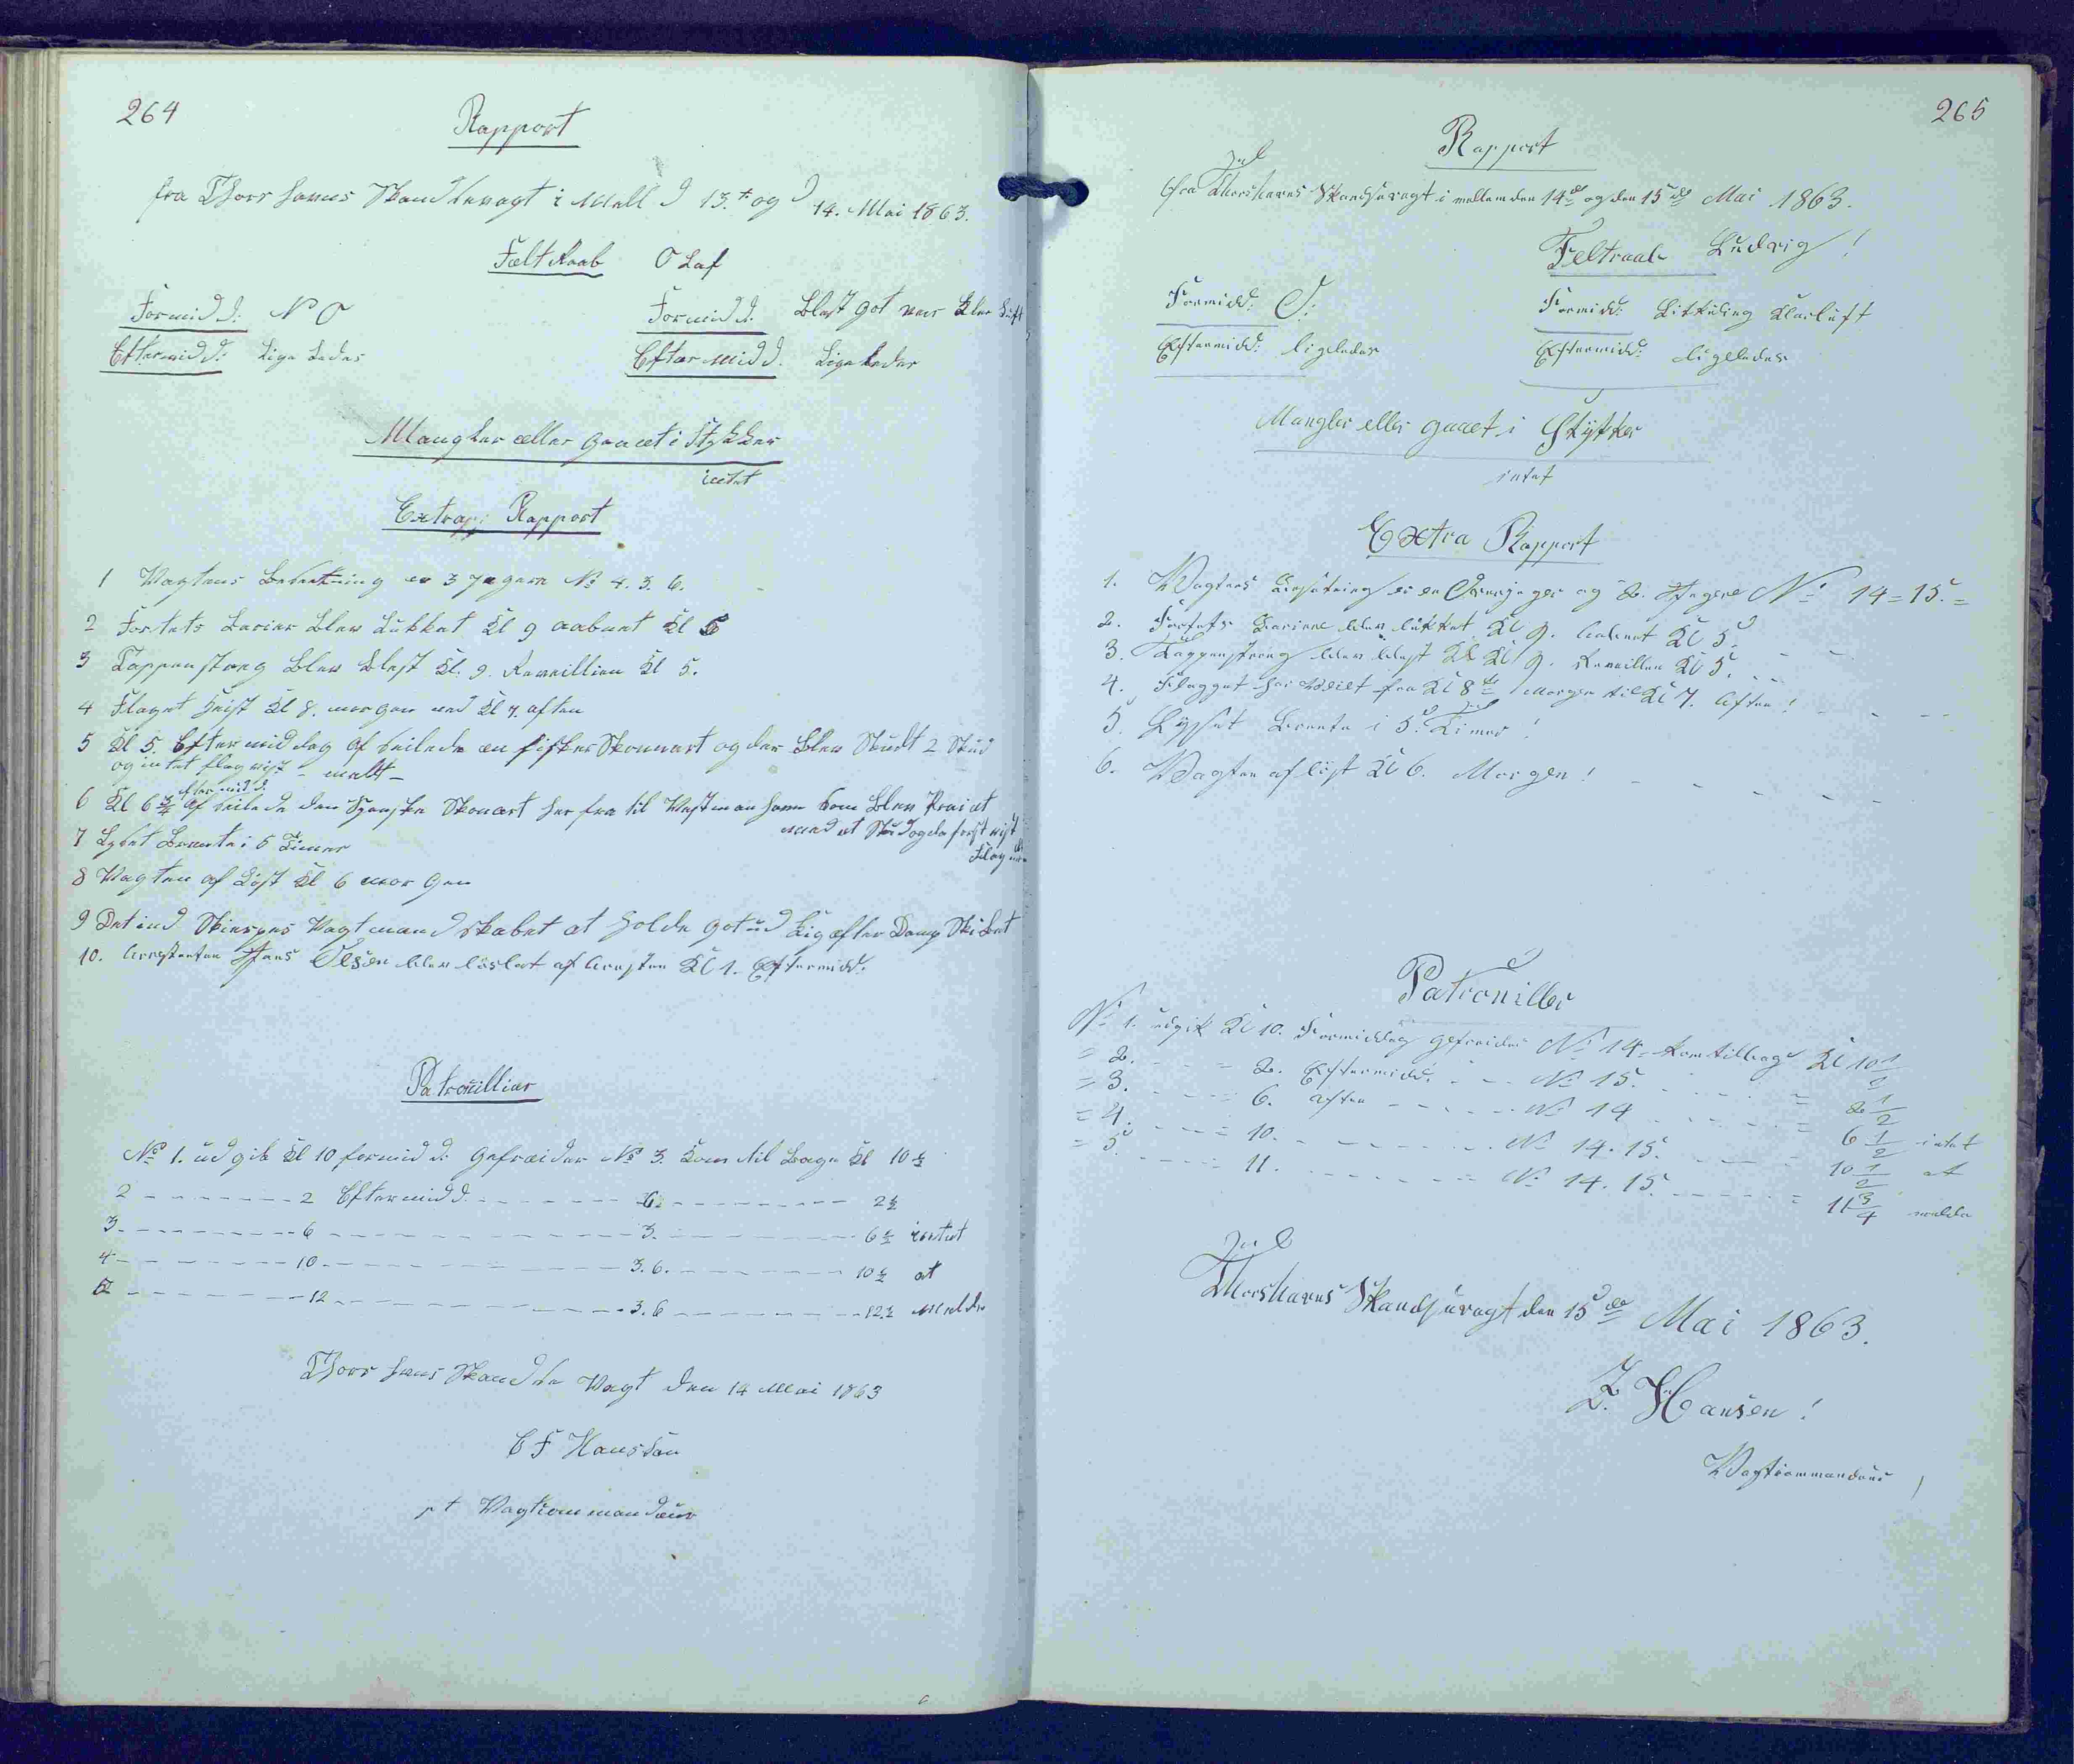 264
Rapport
fra Thorshavns Skandsevagt i Mell d 13.t og d 14. Mai 1863.
Felt Raab Olaf
Formidd: N O
Eftermidd: Lige Ledes
Formidd. Blæst got veir Klar Luft
Eftermidd. Lige Ledes
Mangler eller gaaet i Stykker
intet
Extra: Rapport
1 Vagtens Besetning er 3 Jægere No 4. 3. 6.
2 Fortets Barier Blev Lukket Kl 9 aabnet Kl 5
3 Tappenstreg Blev Blest Kl. 9. Reveillien Kl 5.
4 Flaget Heist Kl 8. morgen ned Kl 7. aften
5 Kl 5. Eftermiddag af seilede en fisker Skonnert og der Blev Skudt 2 Skud
og intet flag vist - melt -
eftermidd:
6 Kl 6 af seilede den Spanske Skonert her fra til Vestmanhavn som Blev Praiet
med et Skud og da først vist
Flag
7 Lyset Brente i 5 Timer
8 Vagten af Løst Kl 6 morgen
9 Det ind Skierpes Vagtmandskabet at Holde got ud Kig efter Damp Skibet
10. Arrestanten Hans Olsen blev løsladt af Aresten Kl 1. Eftermidd:
Patrouillier
No 1. ud gik Kl 10 formidd: Gefreider No 3. Kom til Bage Kl 10½
2 - - - 2 Eftermidd. - - - 6. - - - 2½
3. - - - 6 - - - 3. - - - 6½ intet
4 - - - 10. - - - 3. 6. - - - 10½ at
5 - - - 12 - - - 3. 6 - - - 12½ melde
Thorshavns Skandse Vagt den 14 Mai 1863
C F Hanssen
pt Vagtcommandeur
265
Rapport
fra Thorshavns Skandsevagt i mellem den 14de og den 15de Mai 1863.
Feltraab Ludvig!
Formidd: O:
Eftermidd: ligeledes
Formidd: Littuling Klarluft
Eftermidd: ligeledes
Mangler eller gaaet i Stykker
intet
Extra Rapport
1. Vagtens Besætning er en Overjæger og 2. Jægere No 14 = 15. =
2. Fortets Bariere blev lukket Kl 9. Aabnet Kl 5.
3. Tappenstreg blev blæst Kl 9. Reveillen Kl 5.
4. Flagget har Veiet fra Kl 8te Morgen til Kl 7. Aften!
5. Lysset Brente i 5. Timer!
6. Vagten afløst Kl 6. Morgen!
Patrouiller
No 1. udgik Kl 10. Formiddag gefreider No 14. kom tilbage Kl 10 1/2
= 2. - - - 2. Eftermidd: - - No 15. - - - = 2 1/2
= 3. - - - 6. Aften - - - No 14 - - - = 6 1/2 intet
= 4. - - - 10. - - - No 14. 15. - - - 10 1/2 at
= 5. - - - 11. - - - No 14. 15. - - - 11 3/4 melde
Thorshavns Skandsevagt den 15de Mai 1863.
Z. Hansen!
Vagtcommandeur